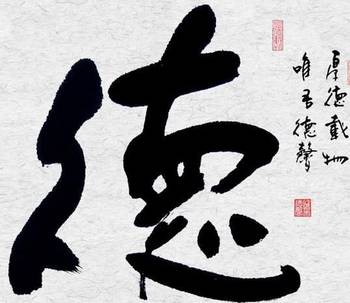 厚德載物
唯吾德馨
德